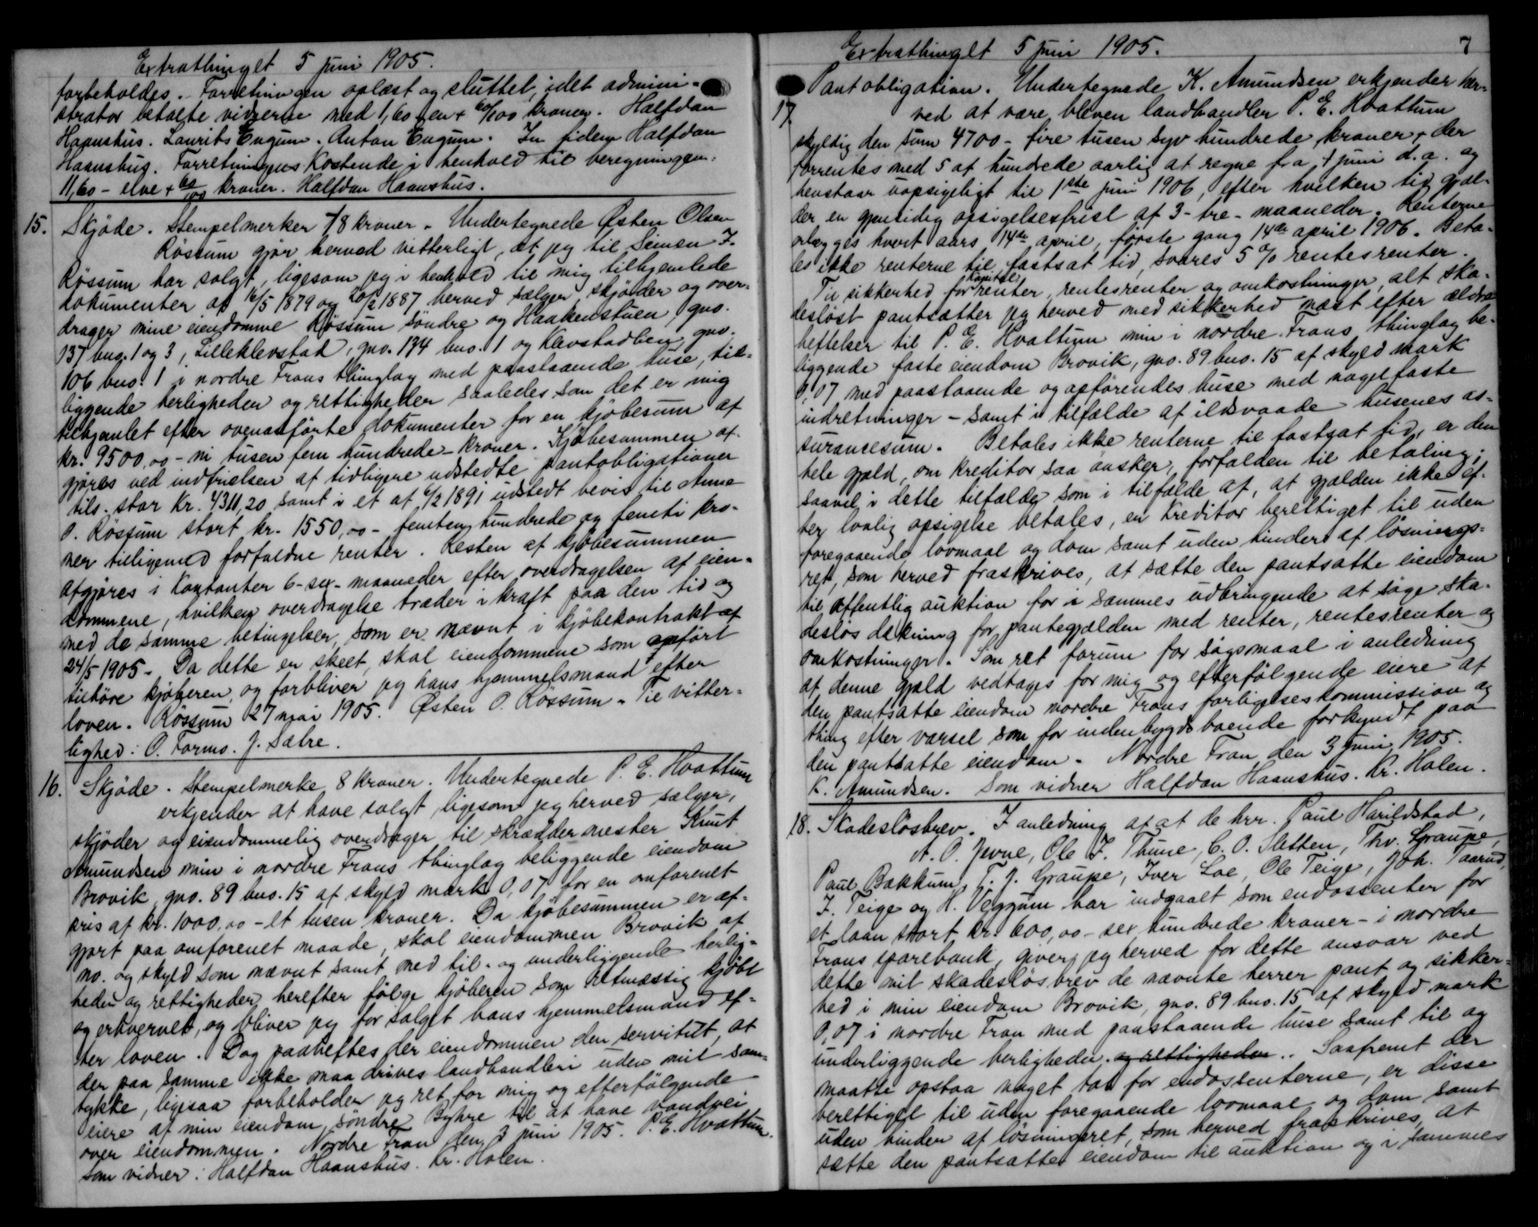 Extrathinget 5 juni 1905.
forbeholdes. Forretningen oplæst og sluttet, idet admini-
strator betalte vidnerne med 1,60 en + 60/100 kroner. Halfdan
Haanshus. Laurits Engum. Anton Engum. In fidem Halfdan
Haanshus. Forretningens kostende i henhold til beregningen.
11,60 - elve + 60/100 kroner. Halfdan Haanshus.
15. Skjøde. Stempelmerker 78 kroner. Undertegnede Østen Olsen
Røssum gjør herved vitterligt, at jeg til Simen I.
Røssum har solgt, ligesom jeg i henhold til mig tilhjemlede
dokumenter af 16/5 1879 og 20/2 1887 herved sælger, skjøder og over-
drager mine eiendomme Røssum søndre og Haakenstuen, gno.
137 bno. 1 og 3, Lilleklevstad, gno. 134 bno. 1 og Klevstadlien gno.
106 bno. 1 i nordre Frons thinglag med paastaaende huse, til-
liggende herligheder og rettigheder saaledes som det er mig
tilhjemlet efter ovenanførte dokumenter for en kjøbesum af
kr. 9500,00 - ni tusen fem hundrede - kroner. Kjøbesummen af-
gjøres ved indfrielsen af tidligere udstedte pantobligationer
tils. stor kr. 4310,20 samt i et af 6/2 1891 udstedt bevis til Anne
O. Røssum stort kr. 1550,00 - femten hundrede og femti kro-
ner tilligemed forfaldne renter. Resten af kjøbesummen
afgjøres i kontanter 6 - sex - maaneder efter overdragelsen af eien-
dommene, hvilken overdragelse træder i kraft paa den tid og
med de samme betingelser, som er nævnt i kjøbekontrakt af
24/5 1905. Da dette er skeet, skal eiendommene som anført
tilhøre kjøberen, og forbliver jeg hans hjemmelsmand efter
loven. Røssum 27 mai 1905. Østen O. Røssum. Til vitter-
lighed: O. Formo. J. Sabre.
16. Skjøde. Stempelmerke 8 kroner. Undertegnede P. E. Hvattum
erkjender at have solgt, ligesom jeg herved sælger,
skjøder og eiendommelig overdrager til skræddermester Knut
Amundsen min i nordre Frons thinglag beliggende eiendom
Brovik, gno. 89 bno. 15 af skyld mark 0,07 for en omforenet
pris af kr. 1000,00 - et tusen kroner. Da kjøbesummen er af-
gjort paa omforenet maade, skal eiendommen Brovik af
no. og skyld som nævnt samt med til- og underliggende herlig-
heder og rettigheder herefter følge kjøberen som retmæssig kjøbt
og erhvervet, og bliver jeg for salget hans hjemmelsmand ef-
ter loven. Dog paaheftes der eiendommen den servitut, at
der paa samme ikke maa drives landhandleri uden mit sam-
tykke, ligesaa forbeholder jeg ret for mig og efterfølgende
eiere af min eiendom, søndre Byhre til at have vandvei
over eiendommen. Nordre Fron den 3 juni 1905. P. E. Hvattum.
Som vidner: Halfdan Haanshus. Kr. Holen.
Extrathinget 5 juni 1905. 7
17. Pantobligation. Undertegnede K. Amundsen erkjender her-
ved at være bleven landhandler P. E. Hvattum
skyldig den sum 4700 - fire tusen syv hundrede kroner, der
forrentes med 5 af hundrede aarlig at regne fra 1 juni d.a. og
henstaar uopsigeligt til 1ste juni 1906, efter hvilken tid gjæl-
der en gjensidig opsigelsesfrist af 3 - tre - maaneder. Renterne
erlægges hvert aars 14de april, første gang 14de april 1906. Beta-
les ikke renterne til fastsat tid, svares 5 % rentesrenter.
Til sikkerhed for kapital, renter, rentesrenter og omkostninger, alt ska-
desløst pantsætter jeg herved med sikkerhed næst efter ældre
heftelser til P. E. Hvattum min i nordre Frons thinglag be-
liggende faste eiendom Brovik, gno. 89 bno. 15 af skyld mark
0,07 med paastaaende og opførendes huse med nagelfaste
indretninger - samt i tilfælde af ildsvaade husenes as-
surancesum. Betales ikke renterne til fastsat tid, er den
hele gjæld, om kreditor saa ønsker, forfalden til betaling;
saavel i dette tilfælde som i tilfælde af, at gjælden ikke ef-
ter lovlig opsigelse betales, er kreditor berettiget til uden
foregaaende lovmaal og dom samt uden hinder af løsnings-
ret, som herved fraskrives, at sætte den pantsatte eiendom
til offentlig auktion for i sammes udbringende at søge ska-
desløs dækning for pantegjælden med renter, rentesrenter og
omkostninger. Som ret forum for søgsmaal i anledning
af denne gjæld vedtages for mig og efterfølgende eiere af
den pantsatte eiendom nordre Frons forligelseskommission og
thing efter varsel som for indenbygdsboende forkyndt paa
den pantsatte eiendom. Nordre Fron den 3 juni 1905.
K. Amundsen. Som vidner Halfdan Haanshus. Kr. Holen.
18. Skadesløsbrev. I anledning af at de hrr. Paul Harildstad,
A. O. Jevne, Ole I. Thune, C. O. Sletten, Thv. Graupe,
Paul Bakkum, T. J. Graupe, Iver Loe, Ole Teige, Joh. Taarud,
I. Teige og H. Veggum har indgaaet som endossenter for
et laan stort kr. 600,00 - sex hundrede kroner - i nordre
Frons sparebank, giver jeg herved for dette ansvar ved
dette mit skadesløsbrev de nævnte herrer pant og sikker-
hed i min eiendom Brovik, gno. 89 bno. 15 af skyld mark
0,07 i nordre Fron med paastaaende huse samt til og
underliggende herligheder og rettigheder. Saafremt der
maatte opstaa noget tab for endossenterne, er disse
berettiget til uden foregaaende lovmaal og dom samt
uden hinder af løsningsret, som herved fraskrives, at
sætte den pantsatte eiendom til auktion og i sammes